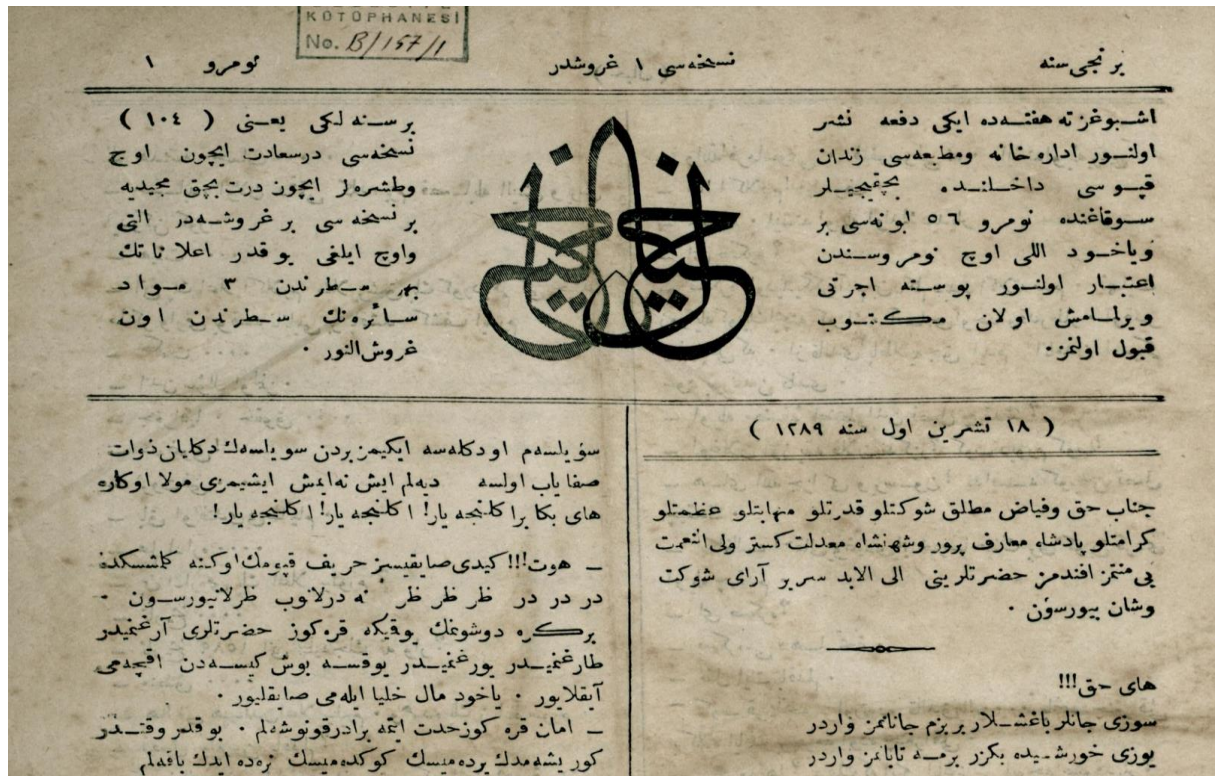 KÜTÜPHANESİ
No. B/157/1
برنجی سنه
نسخه‌سی ١ غروشدر
نومرو ١
اشبو غزته هفته‌ده ایکی دفعه نشر
اولنور اداره خانه ومطبعه‌سی زندان
قپوسی داخلنده بچقیجیلر
سوقاغنده نومرو ٥٦ ابونه‌سی بر
ویاخود اللی اوچ نومروسندن
اعتبار اولنور پوسته اجرتی
ویرلمامش اولان مکتوب
قبول اولنمز.
خیال
برسنه لکی یعنی ( ١٠٤ )
نسخه‌سی درسعادت ایچون اوچ
وطشره‌لر ایچون درت بچق مجیدیه
بر نسخه‌سی بر غروشه‌در التی
واوچ ایلغی یوقدر اعلاناتك
بهر سطرندن ٣ مواد
سائره‌نك سطرندن اون
غروش النور ٠
( ١٨ تشرین اول سنه ١٢٨٩ )
جناب حق وفیاض مطلق شوکتلو قدرتلو مهابتلو عظمتلو
کرامتلو پادشاه معارف پرور وشهنشاه معدلت کستر ولی النعمت
بی منتمز افندمز حضرتلرینی الی الابد سریر آرای شوکت
وشان بیورسون ٠
های حق!!!
سوزی جانلر باغشلار بر بزم جانانمز واردر
یوزی خورشیده بکزر بزمه تابانمز واردر
سؤیلسه‌م اودکله‌سه ایکیمز بردن سویلسه‌ك دکلیان ذوات
صفایاب اولسه دیه‌لم ایش نه‌ایمش ایشیمزی مولا اوکاره
های بکا براکلنجه یار! اکلنجه یار! اکلنجه یار!
ـ هوت!!! کیدی صایقیسز حریف قپومك اوکنه کلمشسکده
در در در ظر ظر ظر نه درلانوب ظرلانیورسون ٠
برکره دوشونمك یوقیکه قره‌کوز حضرتلری آرغنمیدر
طارغنمیدر یورغنمیدر یوقسه بوش کیسه‌دن اقچه‌می
آیقلایور ٠ یاخود مال خلیا ایله‌می صایقلیور ٠
ـ امان قره کوز حدت ایتمه برادر قونوشه‌لم ٠ بوقدر وقتدر
کوریشه‌مدك یرده‌میسك کوکده‌میسك نره‌ده ایدك باقه‌لم